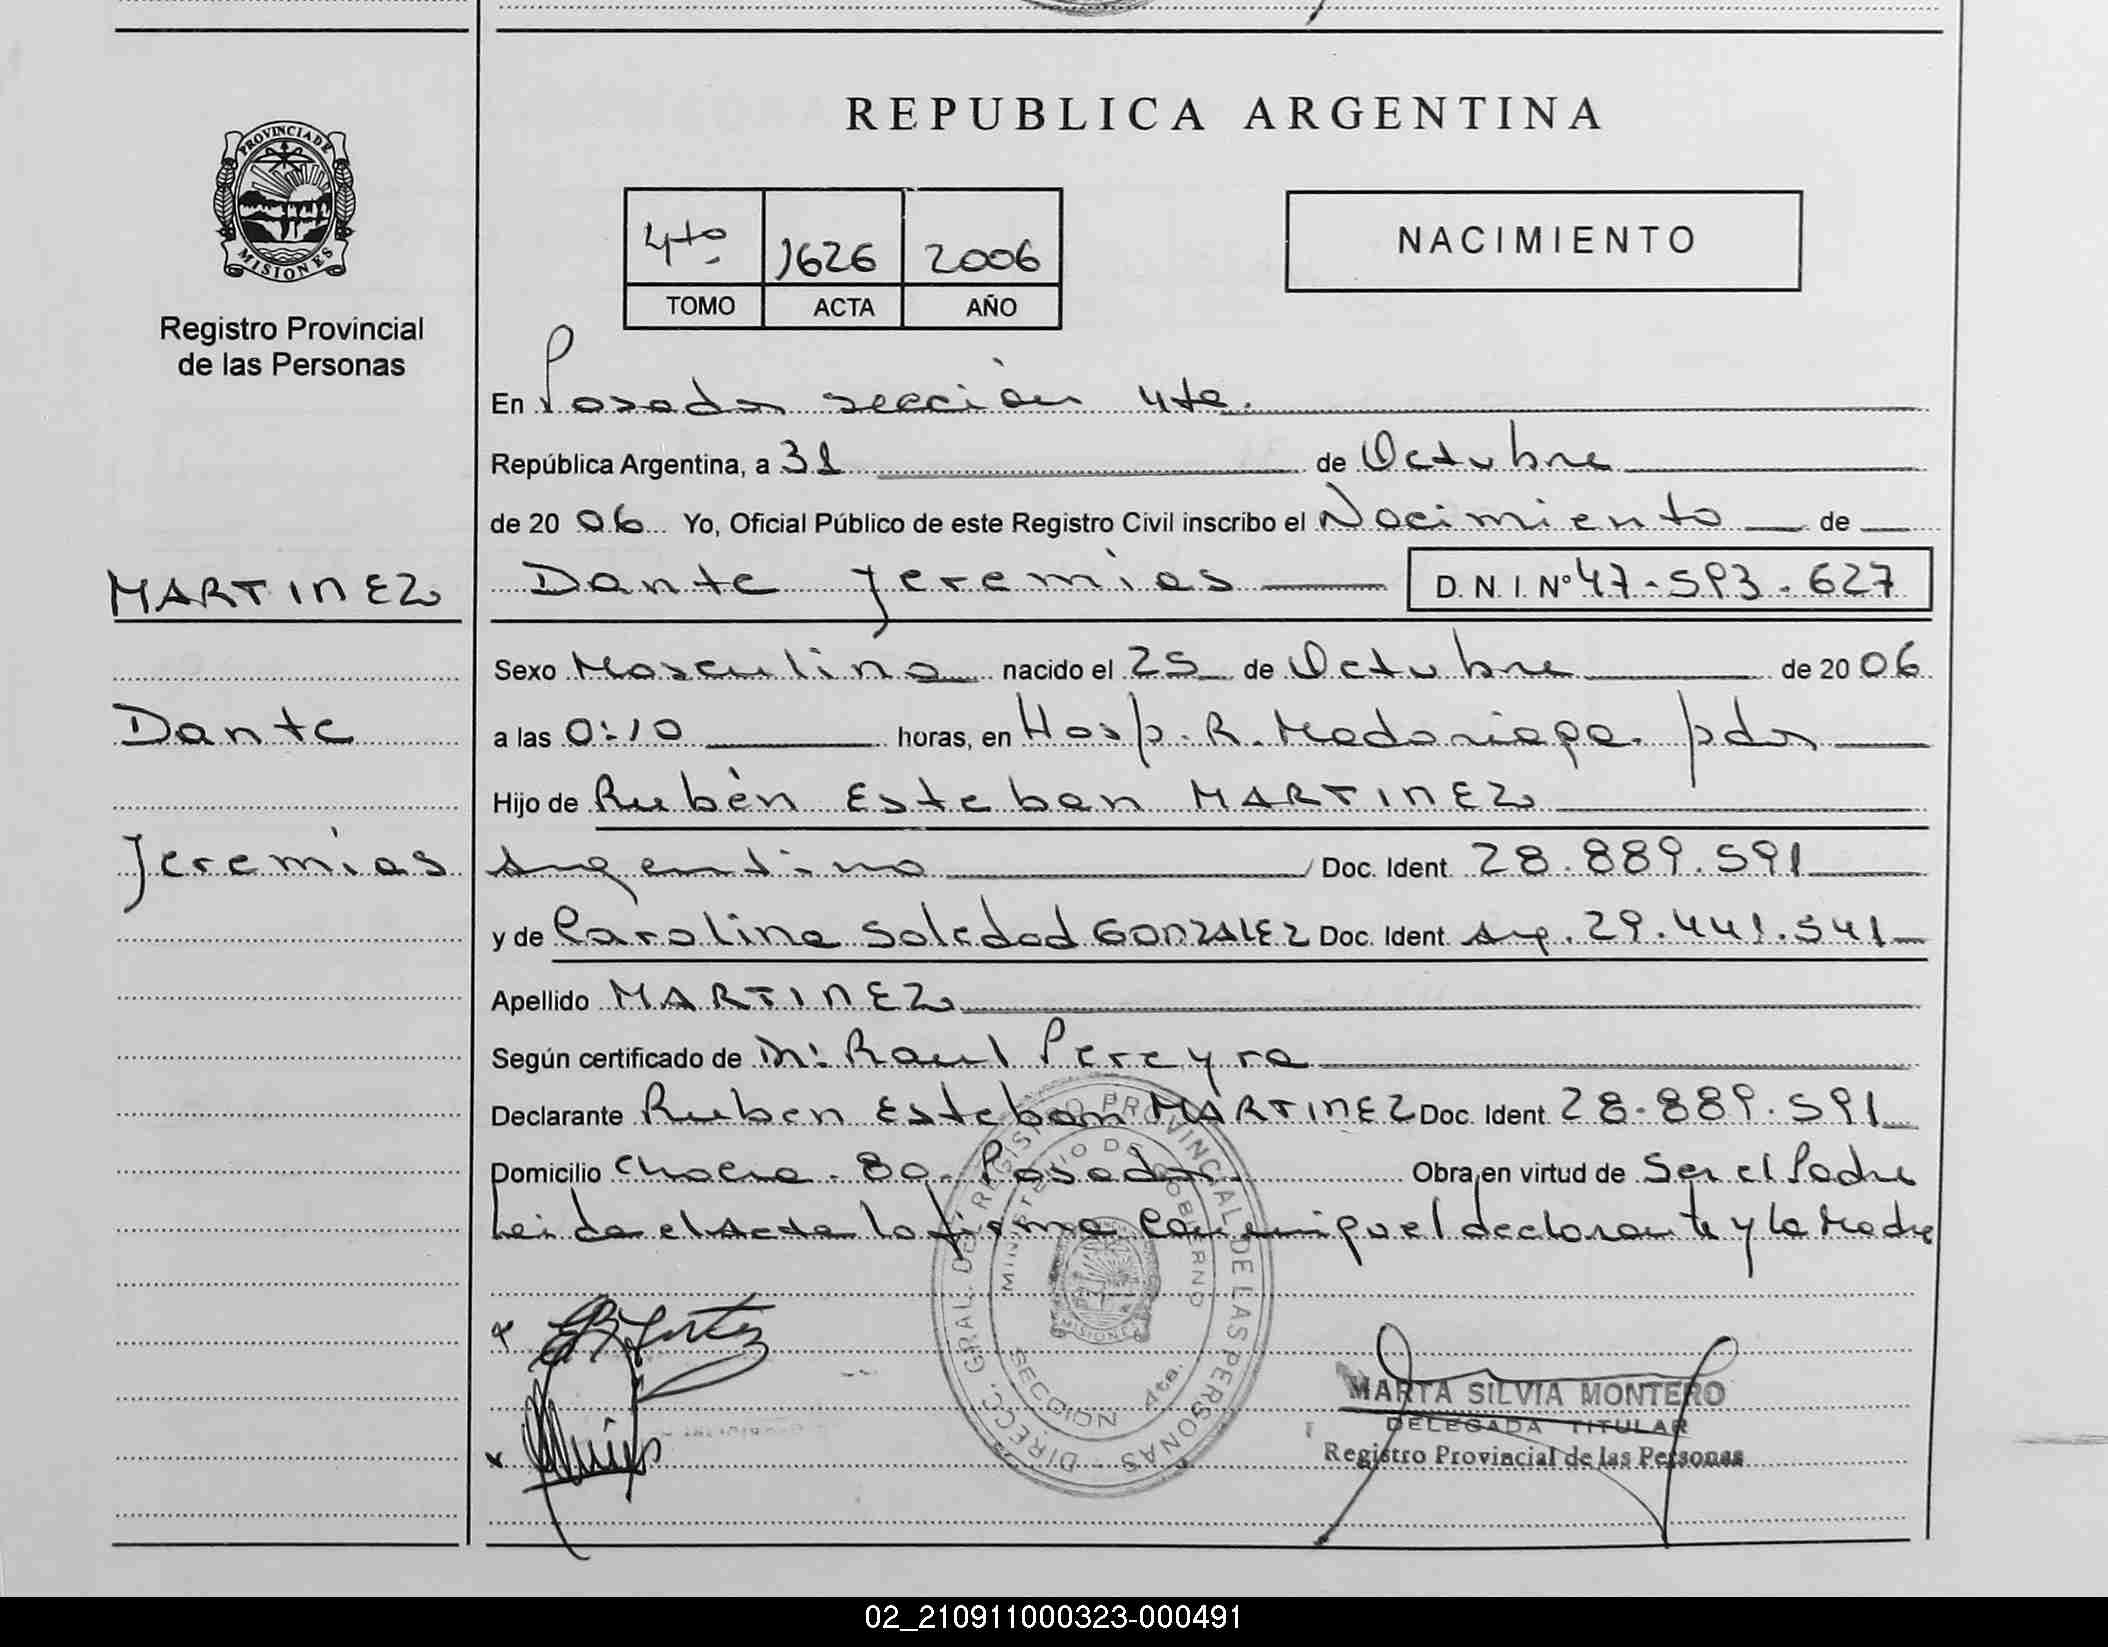 REPUBLICA ARGENTINA
PROVINCIA DE
MISIONES
Registro Provincial
de las Personas
4to 1626 2006
TOMO ACTA AÑO
NACIMIENTO
En Posadas sección 4ta.
República Argentina, a 31 de Octubre
de 20 06 Yo, Oficial Público de este Registro Civil inscribo el Nacimiento de
MARTINEZ
Dante Jeremias D.N.I. Nº 47-593.627
Sexo Masculino nacido el 25 de Octubre de 20 06
Dante
a las 0:10 horas, en Hosp. R. Madariaga. pdas
Hijo de Rubèn Esteban MARTINEZ
Jeremías
Argentino Doc. Ident. 28.889.591
y de Carolina Soledad GONZALEZ Doc. Ident. Arg. 29.441.541
Apellido MARTINEZ
Según certificado de Dr: Raul Pereyra
Declarante Ruben Esteban MARTINEZ Doc. Ident. 28.889.591
Domicilio Chacra. 80. Posadas. Obra en virtud de Ser el Padre
Leida el Acta la firma Conmigo el declarante y la Madre
DIRECC. GRAL. DEL REGISTRO PROVINCIAL DE LAS PERSONAS
MINISTERIO DE GOBIERNO
MISIONES
SECCION 4ta.
MARTA SILVIA MONTERO
DELEGADA TITULAR
Registro Provincial de las Personas
02_210911000323-000491